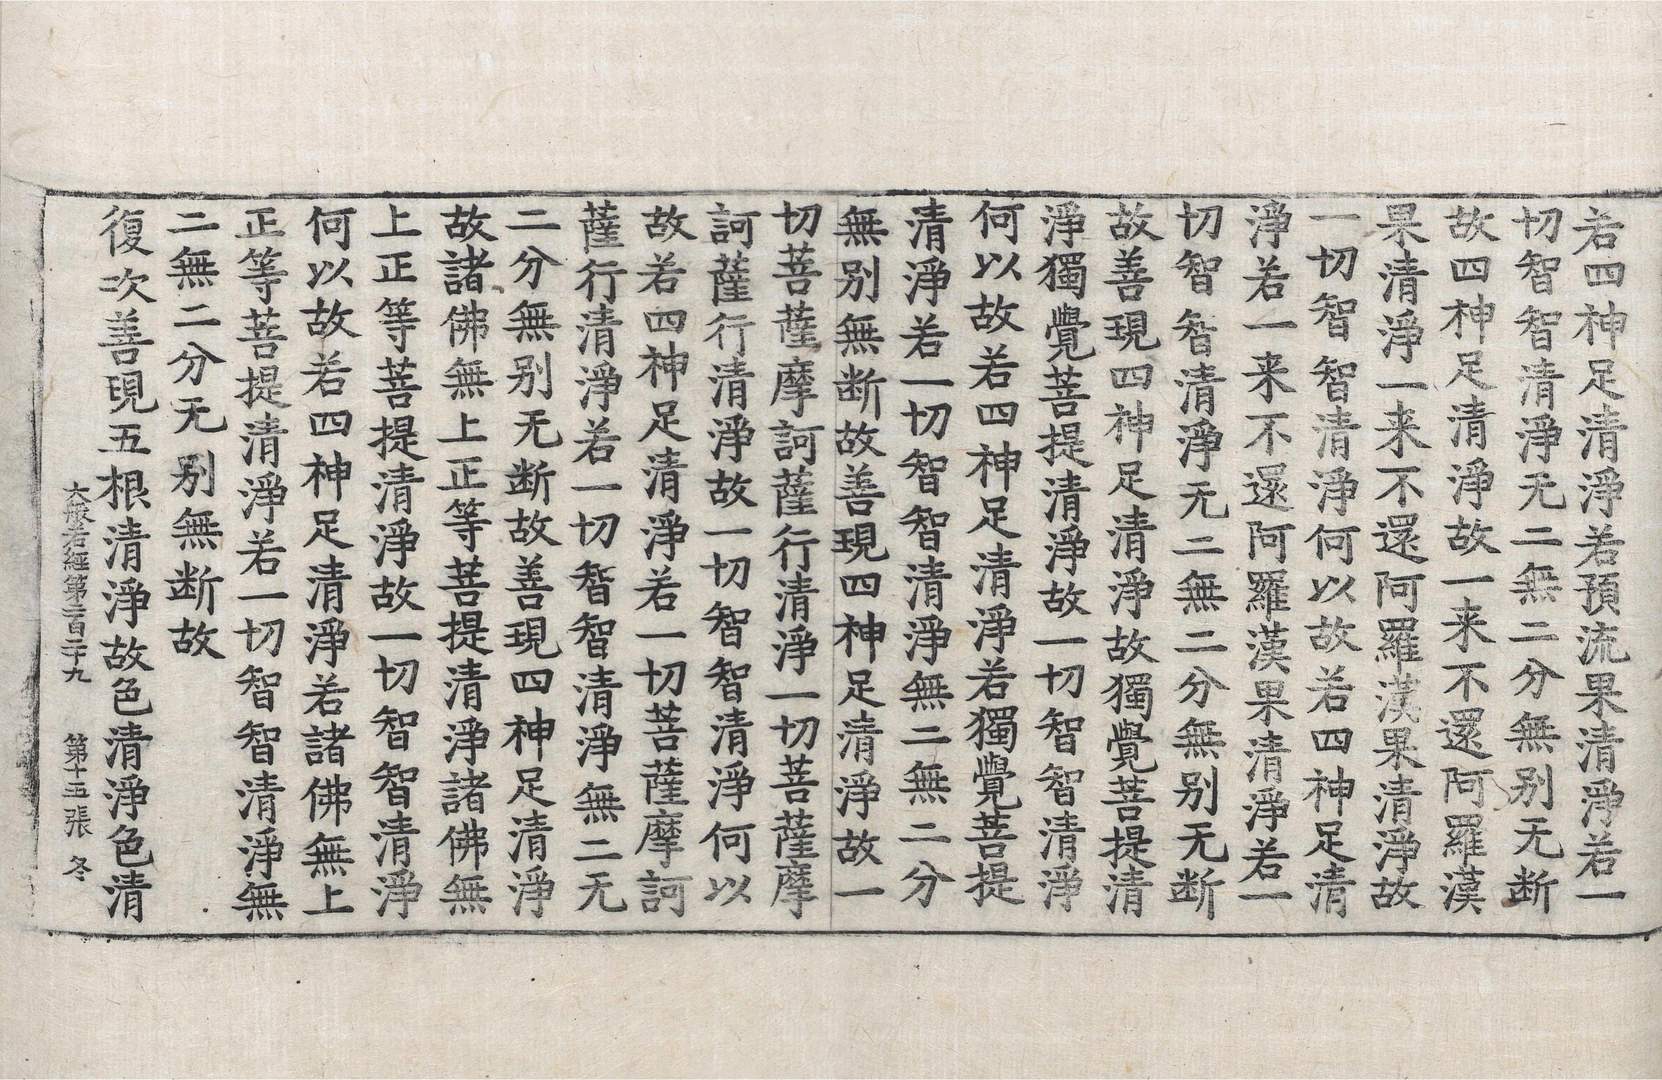 若四神足清淨若預流果清淨若一
切智智清淨无二無二分無别无断
故四神足清淨故一来不還阿羅漢
果清淨一来不還阿羅漢果清淨故
一切智智清淨何以故若四神足清
淨若一来不還阿羅漢果清淨若一
切智智清淨无二無二分無别无断
故善現四神足清淨故獨覺菩提清
淨獨覺菩提清淨故一切智智清淨
何以故若四神足清淨若獨覺菩提
清淨若一切智智清淨無二無二分
無别無断故善現四神足清淨故一
切菩薩摩訶薩行清淨一切菩薩摩
訶薩行清淨故一切智智清淨何以
故若四神足清淨若一切菩薩摩訶
薩行清淨若一切智智清淨無二无
二分無别无断故善現四神足清淨
故諸佛無上正等菩提清淨諸佛無
上正等菩提清淨故一切智智清淨
何以故若四神足清淨若諸佛無上
正等菩提清淨若一切智智清淨無
二無二分无别無断故
復次善現五根清淨故色清淨色清
大般若經第二百二十九 第十五張 冬